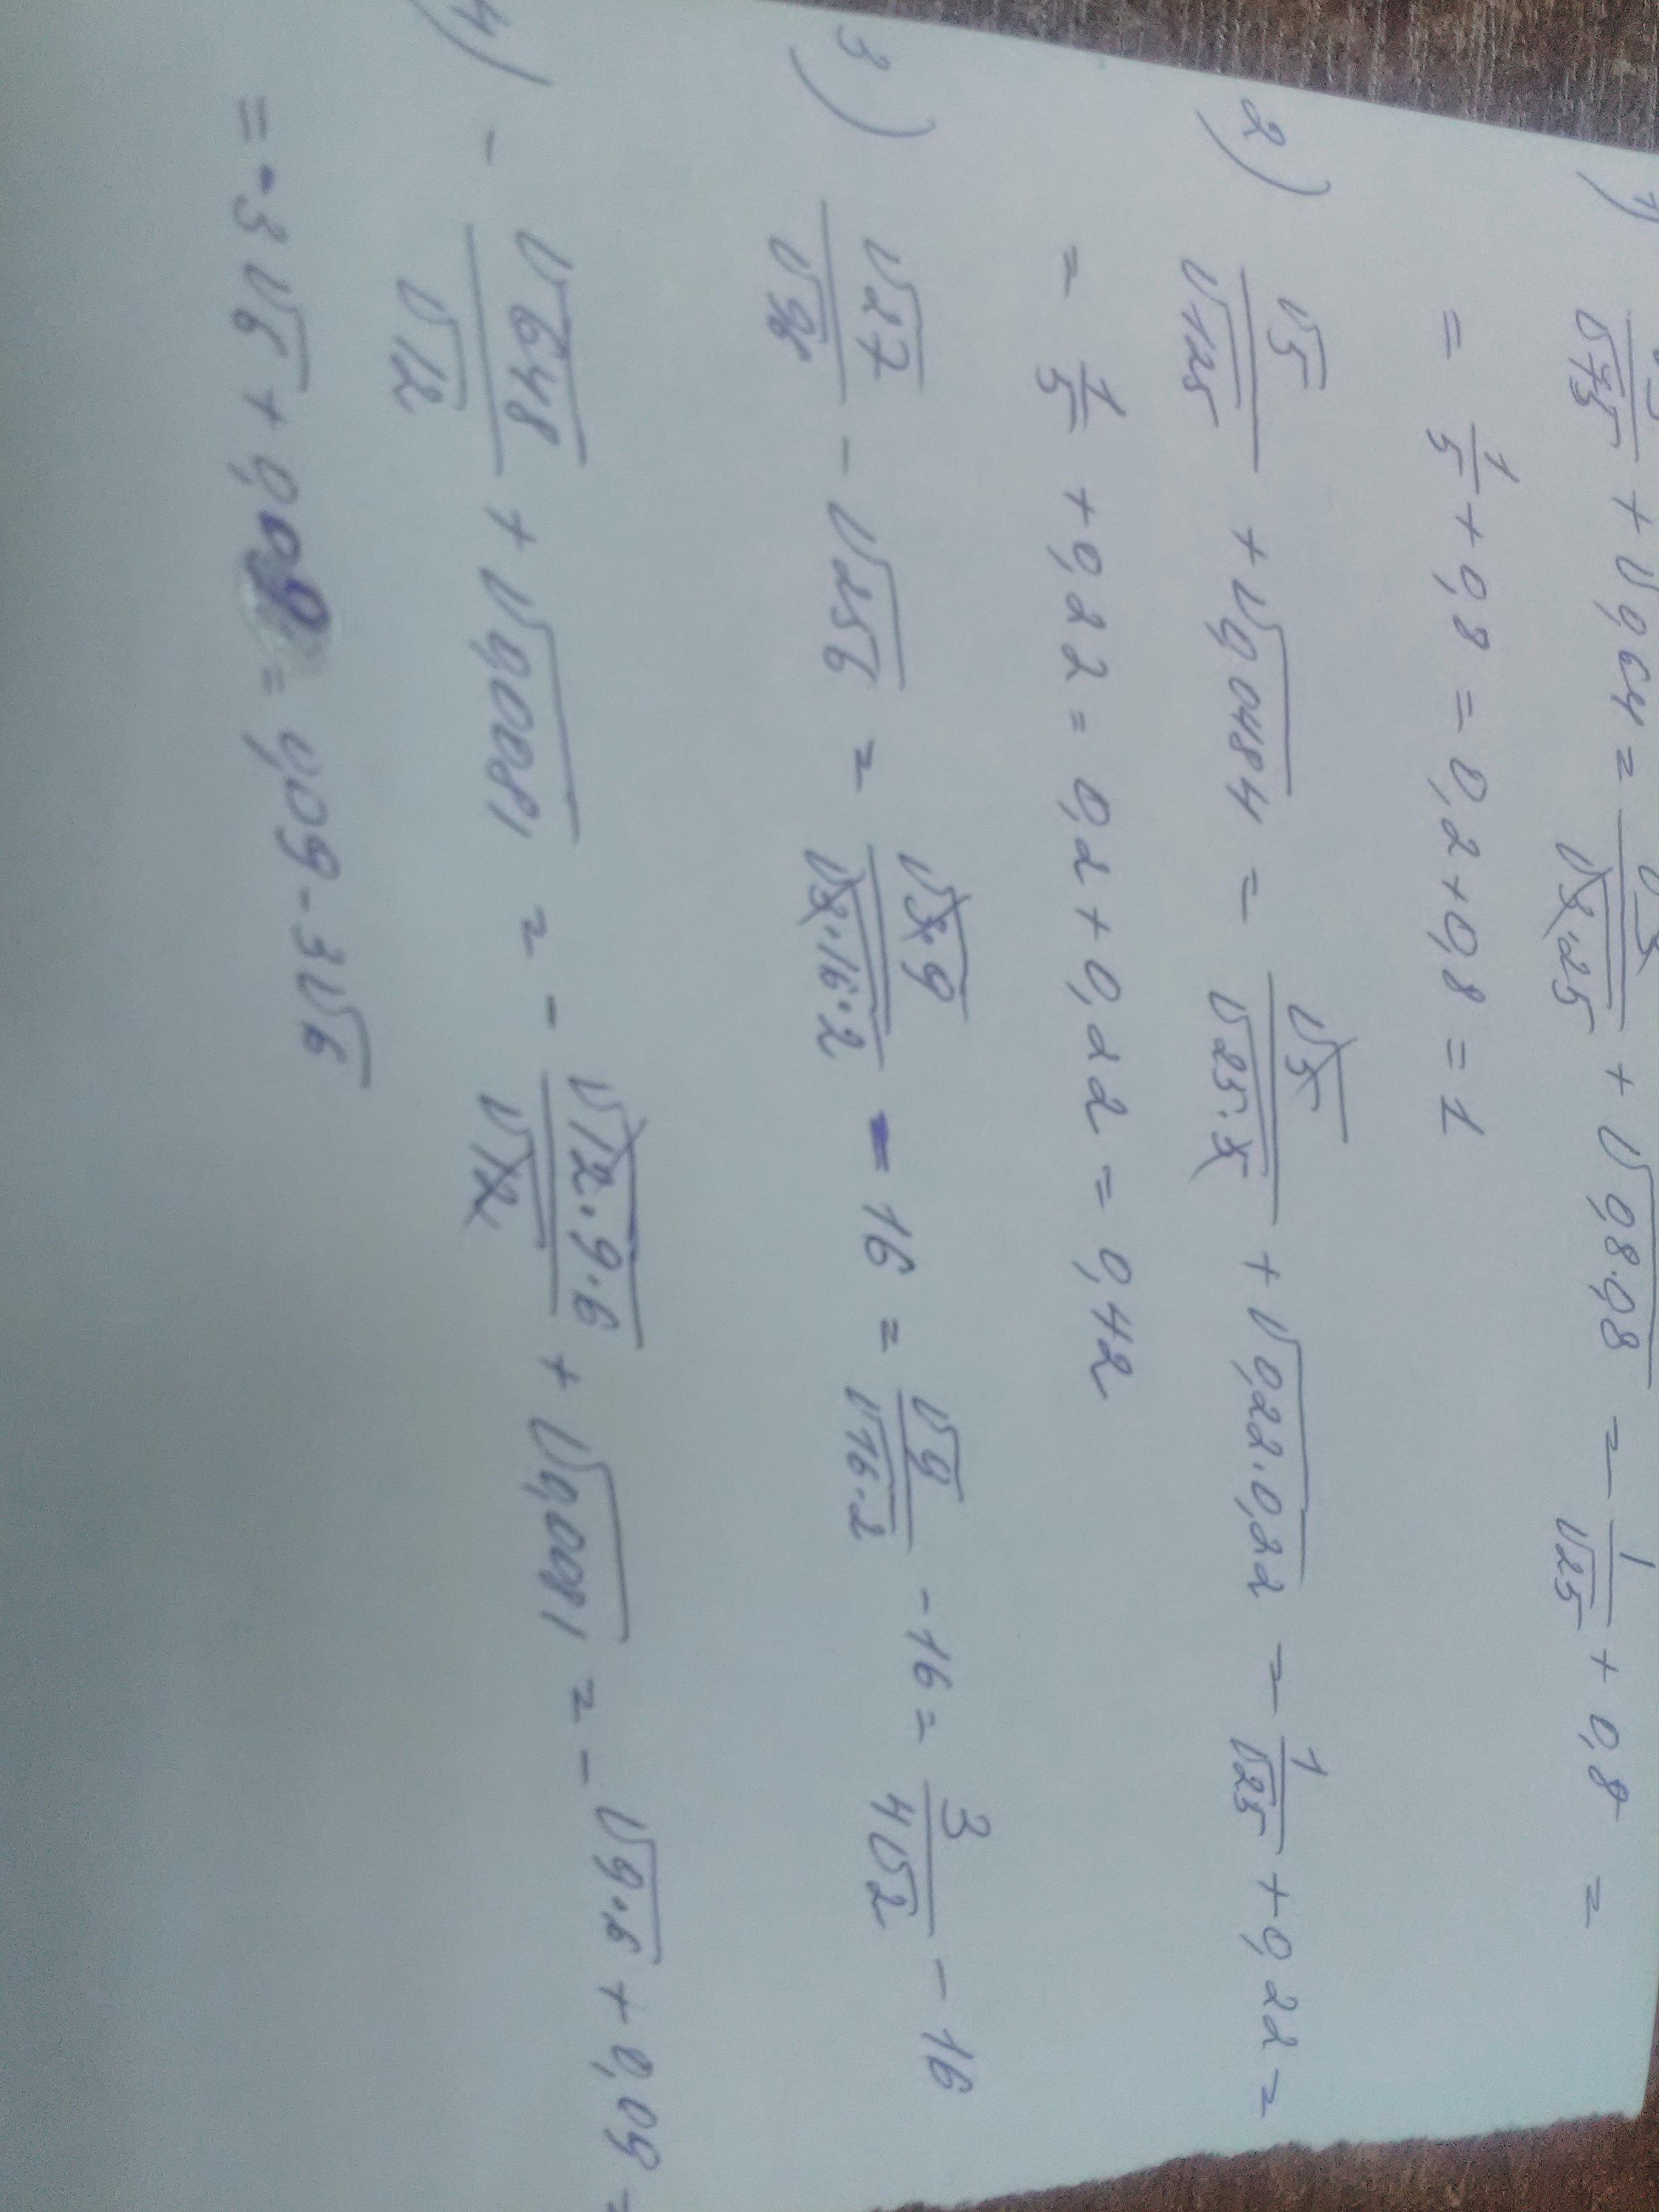 1) √3/√75 + √0,64 = √3/√3·25 + √0,8·0,8 = 1/√25 + 0,8 =
= 1/5 + 0,8 = 0,2 + 0,8 = 1
2) √5/√125 + √0,0484 = √5/√25·5 + √0,22·0,22 = 1/√25 + 0,22 =
= 1/5 + 0,22 = 0,2 + 0,22 = 0,42
3) √27/√96 - √256 = √3·9/√3·16·2 - 16 = √9/√16·2 - 16 = 3/4√2 - 16
4) - √648/√12 + √0,0081 = - √12·9·6/√12 + √0,0081 = - √9·6 + 0,09 =
= -3√6 + 0,09 = 0,09 - 3√6